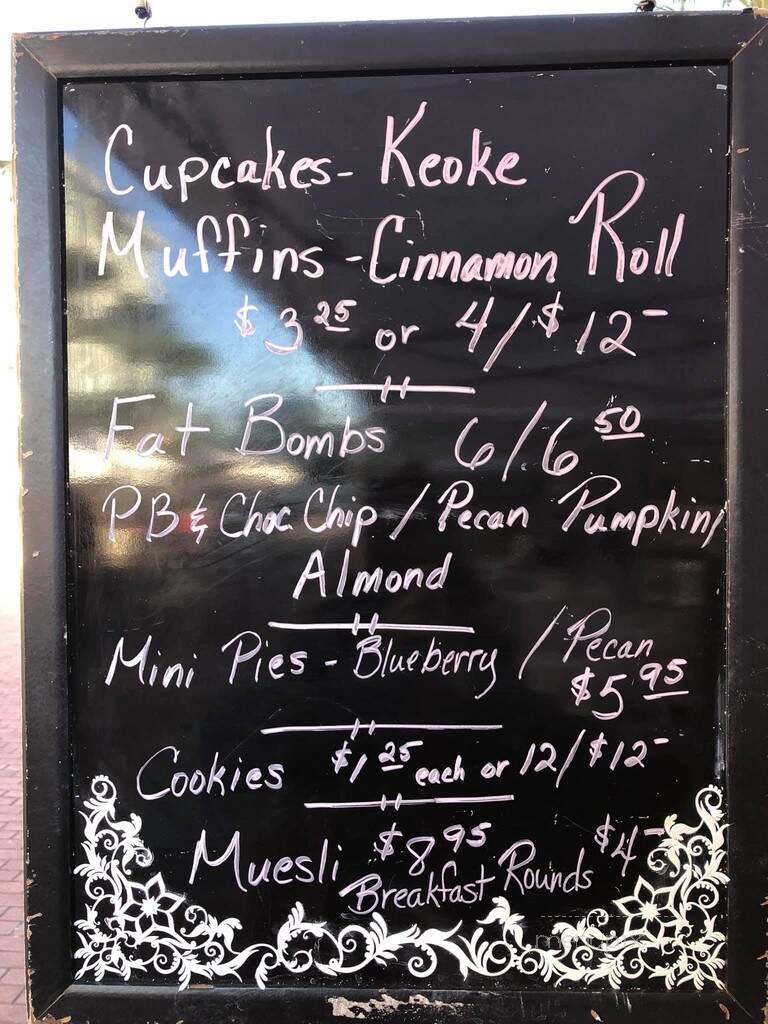 Cupcakes - Keoke
Muffins - Cinnamon Roll
$3.25 or 4/$12-
Fat Bombs 6/6.50
PB & Choc. Chip / Pecan Pumpkin/
Almond
Mini Pies - Blueberry / Pecan
$5.95
Cookies $1.25 each or 12/$12-
Muesli $8.95
Breakfast Rounds $4-